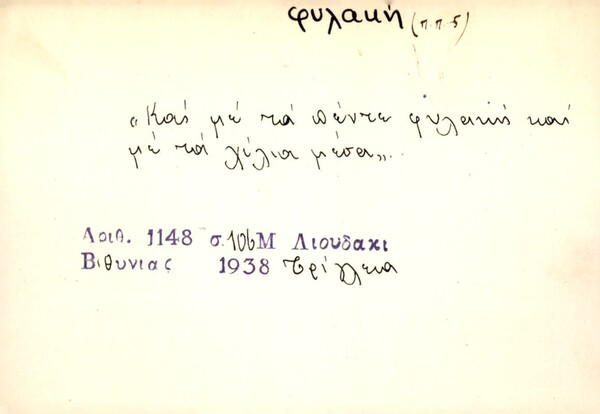 φυλακή (π.π.5)
„Καί μέ τά πέντε φυλακή καί
μέ τά χίλια μέσα„.
Αριθ. 1148 σ.106 Μ Λιουδακι
Βιθυνιας 1938 Τρίλλεια